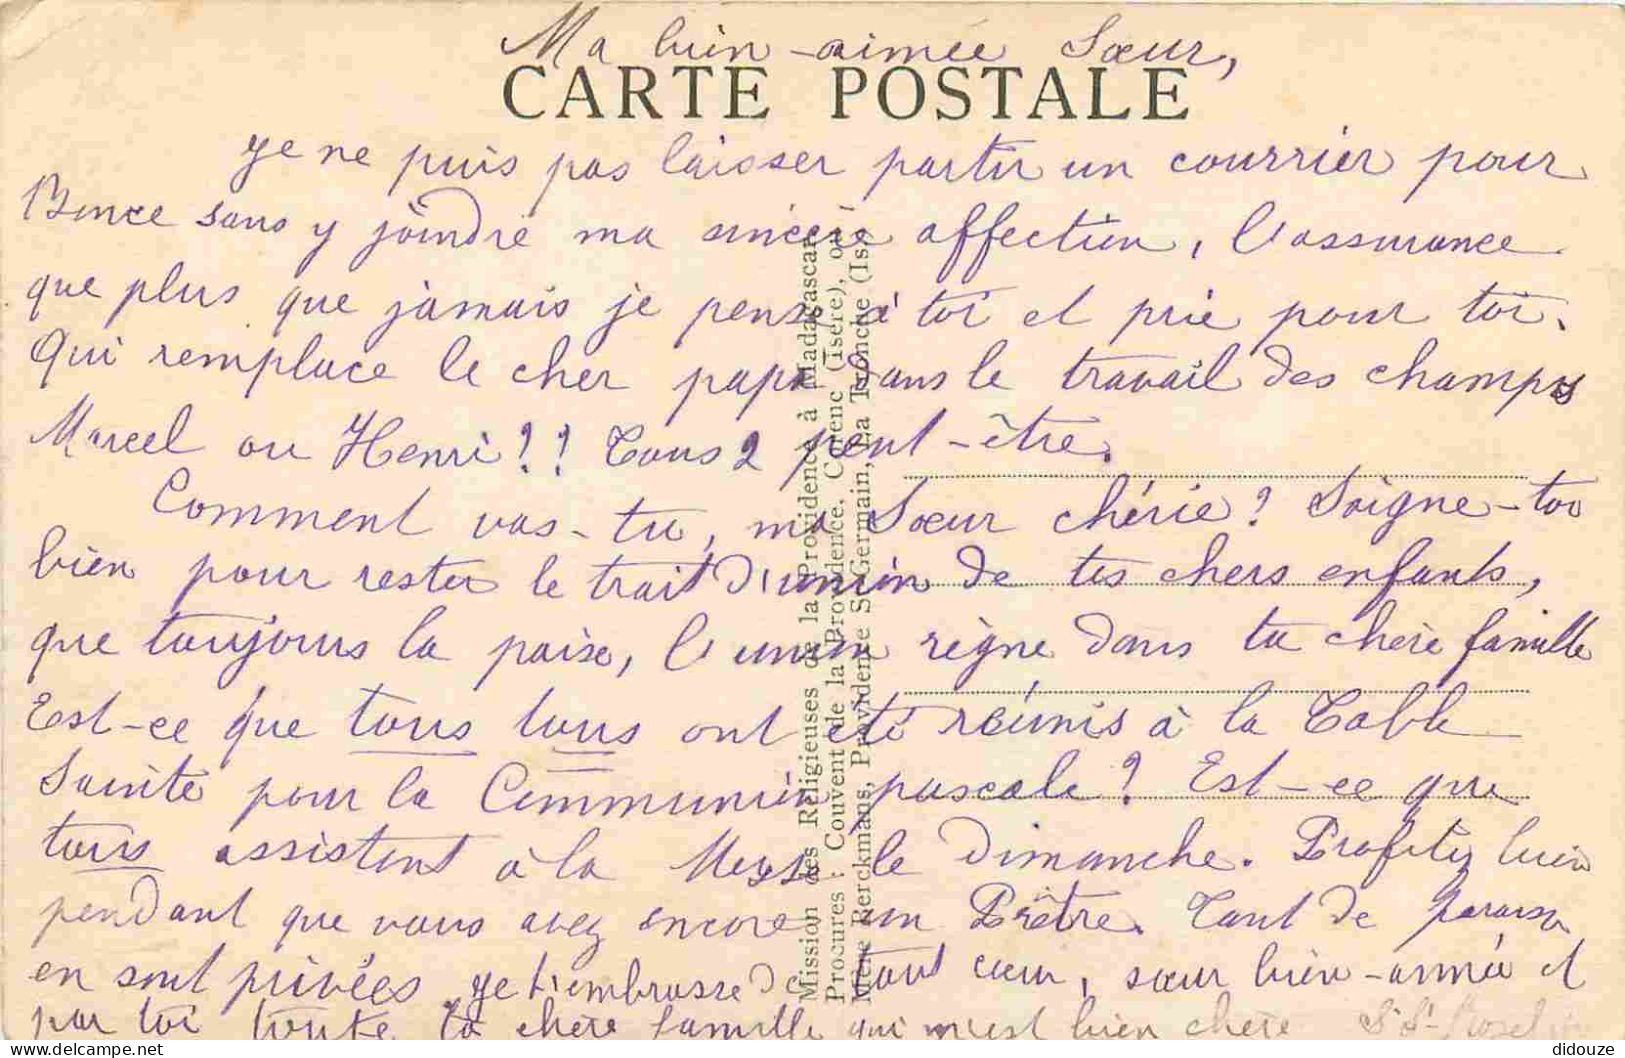 Ma bien-aimée Sœur,
CARTE POSTALE
Je ne puis pas laisser partir un courrier pour
sans y joindre ma sincère affection, l'assurance
que plus que jamais je pense à toi et prie pour toi.
Qui remplace le cher papa dans le travail des champs
Marcel ou Henri?! Tous 2 peut-être.
Comment vas-tu, ma Sœur chérie? Soigne-toi
bien pour rester le trait d'union de tes chers enfants,
que toujours la paix, l'union règne dans ta chère famille
Est-ce que tous tous ont été réunis à la Table
Sainte pour la Communion pascale? Est-ce que
tous assistent à la Messe le Dimanche. Profitez bien
pendant que vous avez encore un Prêtre. Tant de
en sont privées Je t'embrasse de tout cœur, sœur bien-aimée et
par toi toute ta chère famille qui m'est bien chère
Mission des Religieuses de la Providence à Madagascar
Procures : Couvent de la Providence, Corenc (Isère), ou
Mère Berckmans, Providence St-Germain, La Tronche (Isè
didouze